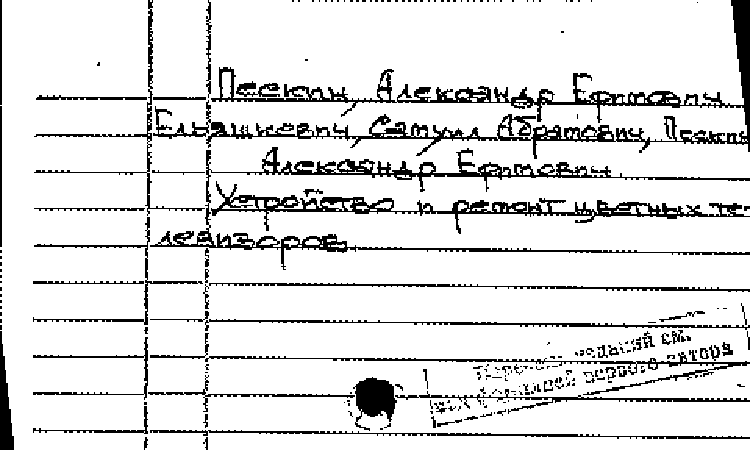 Пескин, Александр Ефимович
Ельяшкевич, Самуил Абрамович, Пескин
Александр Ефимович.
Устройство и ремонт цветных те-
левизоров.
см.
первого автора